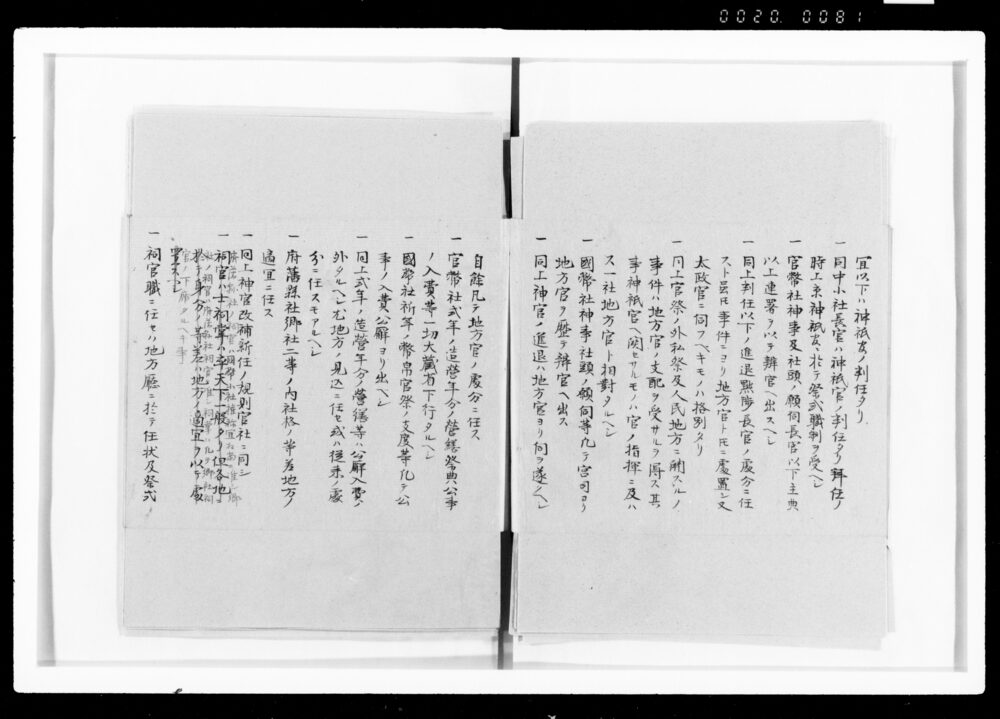 0020. 0081
宜以下ハ神祇官ノ判任タリ
一 同中小社長官ハ神祇官ノ判任タリ拜任ノ
時上京神祇官ニ於テ祭式職制ヲ受ヘシ
一 官幣社神事及社頭ノ願伺長官以下主典
以上連署ヲ以テ辨官ヘ出スヘシ
一 同上判任以下ノ進退黜陟長官ノ處分ニ任
スト雖モ事件ニヨリ地方官トモニ處置シ又
太政官ニ伺フヘキモノハ格別タリ
一 同上官祭ノ外私祭及人民地方ニ關スルノ
事件ハ地方官ノ支配ヲ受サルヲ得ス其
事神祇官ヘ関セサルモノハ官ノ指揮ニ及ハ
ス一社地方官ト相對タルヘシ
一 國幣社神事社頭ノ願伺等凡テ宮司ヨリ
地方官ヲ歴テ辨官ヘ出ス
一 同上神官ノ進退ハ地方官ヨリ伺ヲ遂 クヘシ
自餘凡テ地方官ノ處分ニ任ス
一 官幣社式年ノ造營年分ノ營繕祭典公事
ノ入費等一切大藏省下行タルヘシ
一 國幣社祈年ノ幣帛官祭ノ支度等凡テ公
事ノ入費公廨ヨリ出ヘシ
一 同上式年ノ造營年分ノ營繕等ハ公廨入費ノ
外タルヘシ尤地方ノ見込ニ任セ或ハ從來ノ處
分ニ任スモアルヘシ
一 府藩縣社郷社二等ノ内社格ノ等差地方ノ
適宜ニ任ス
一 同上神官改補新任ノ規則官社ニ同シ
一 祠官ハ士祠掌ハ卒天下一般タリ但各地
於テ身分ノ等差ハ地方ノ適宜ヲ以テ處
置スヘシ
一 祠官職ニ任セハ地方廳ニ於テ任状及祭式ノ